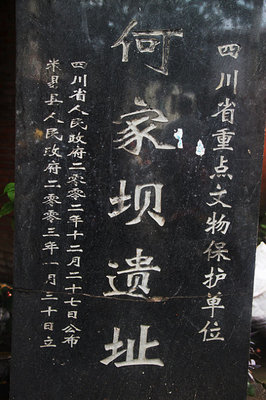 四川省重点文物保护单位
何家坝遗址
四川省人民政府二零零二年十二月二十七日公布
渠县人民政府二零零三年一月三十日立